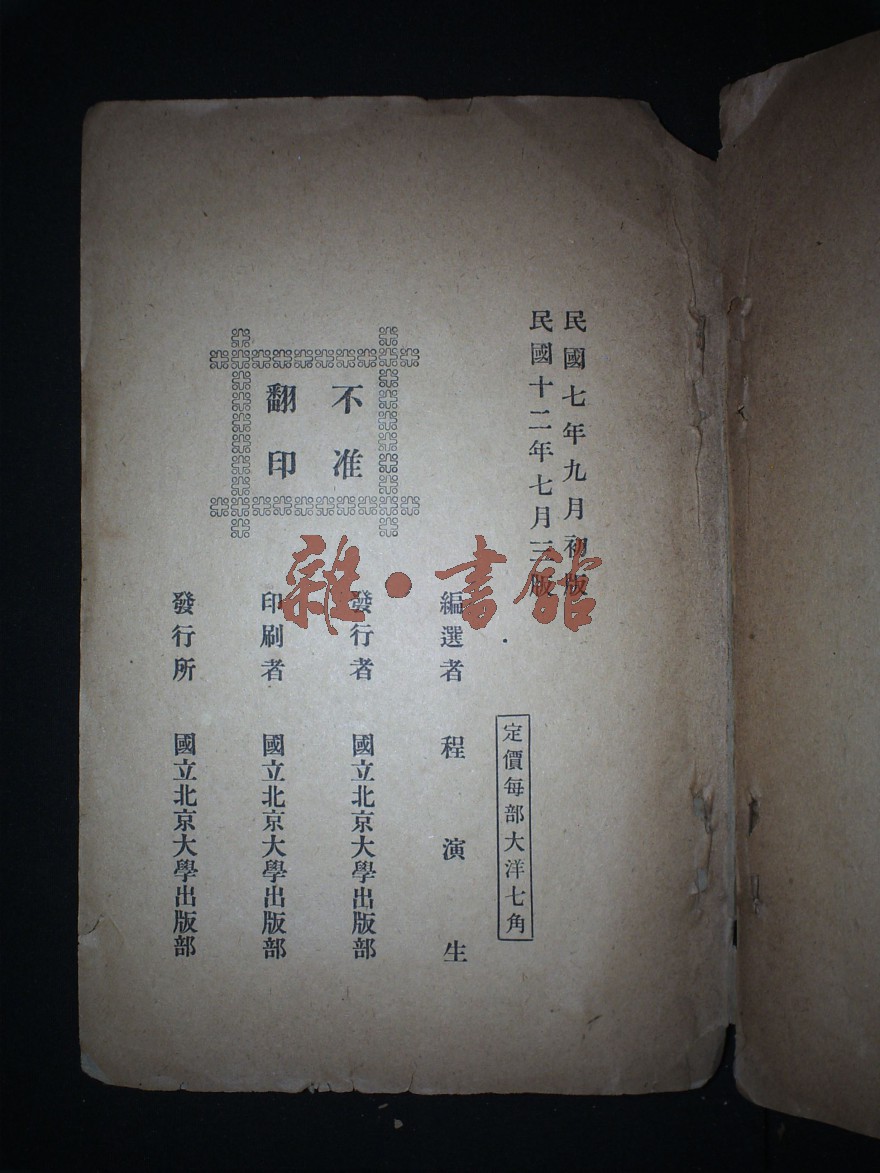 民國七年九月初版
民國十二年七月三版
定價每部大洋七角
編選者 程演生
發行者 國立北京大學出版部
印刷者 國立北京大學出版部
發行所 國立北京大學出版部
不准
翻印
雜·書館